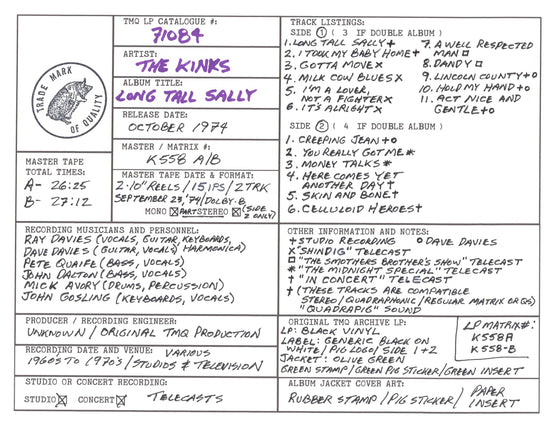 TMQ LP CATALOGUE #:
71084
ARTIST:
THE KINKS
ALBUM TITLE:
LONG TALL SALLY
RELEASE DATE:
OCTOBER 1974
MASTER / MATRIX #:
K558 A/B
TRADE MARK
OF QUALITY
MASTER TAPE
TOTAL TIMES:
A- 26:25
B- 27:12
MASTER TAPE DATE & FORMAT:
2-10" REELS / 15 IPS / 2TRK
SEPTEMBER 23, '74 / DOLBY-B
MONO PART STEREO (SIDE 2 ONLY)
TRACK LISTINGS:
SIDE 1 ( 3 IF DOUBLE ALBUM )
1. LONG TALL SALLY +
2. I TOOK MY BABY HOME +
3. GOTTA MOVE X
4. MILK COW BLUES X
5. I'M A LOVER,
NOT A FIGHTER X
6. IT'S ALRIGHT X
7. A WELL RESPECTED
MAN □
8. DANDY □
9. LINCOLN COUNTY + o
10. HOLD MY HAND + o
11. ACT NICE AND
GENTLE + o
SIDE 2 ( 4 IF DOUBLE ALBUM )
1. CREEPING JEAN + o
2. YOU REALLY GOT ME #
3. MONEY TALKS #
4. HERE COMES YET
ANOTHER DAY †
5. SKIN AND BONE †
6. CELLULOID HEROES †
RECORDING MUSICIANS AND PERSONNEL:
RAY DAVIES (VOCALS, GUITAR, KEYBOARDS,
HARMONICA)
DAVE DAVIES (GUITAR, VOCALS)
PETE QUAIFE (BASS, VOCALS)
JOHN DALTON (BASS, VOCALS)
MICK AVORY (DRUMS, PERCUSSION)
JOHN GOSLING (KEYBOARDS, VOCALS)
OTHER INFORMATION AND NOTES:
+ STUDIO RECORDING o DAVE DAVIES
X "SHINDIG" TELECAST
□ "THE SMOTHERS BROTHER'S SHOW" TELECAST
# "THE MIDNIGHT SPECIAL" TELECAST
† "IN CONCERT" TELECAST
† (THESE TRACKS ARE COMPATIBLE
STEREO/QUADRAPHONIC/REGULAR MATRIX OR QS)
"QUADRAPIG" SOUND
PRODUCER / RECORDING ENGINEER:
UNKNOWN / ORIGINAL TMQ PRODUCTION
RECORDING DATE AND VENUE: VARIOUS
1960'S TO 1970'S / STUDIOS & TELEVISION
STUDIO OR CONCERT RECORDING:
STUDIO CONCERT TELECASTS
ORIGINAL TMQ ARCHIVE LP:
LP: BLACK VINYL
LABEL: GENERIC BLACK ON
WHITE / PIG LOGO / SIDE 1+2
JACKET: OLIVE GREEN
GREEN STAMP / GREEN PIG STICKER / GREEN INSERT
LP MATRIX #:
K558A
K558-B
ALBUM JACKET COVER ART:
RUBBER STAMP / PIG STICKER / PAPER
INSERT